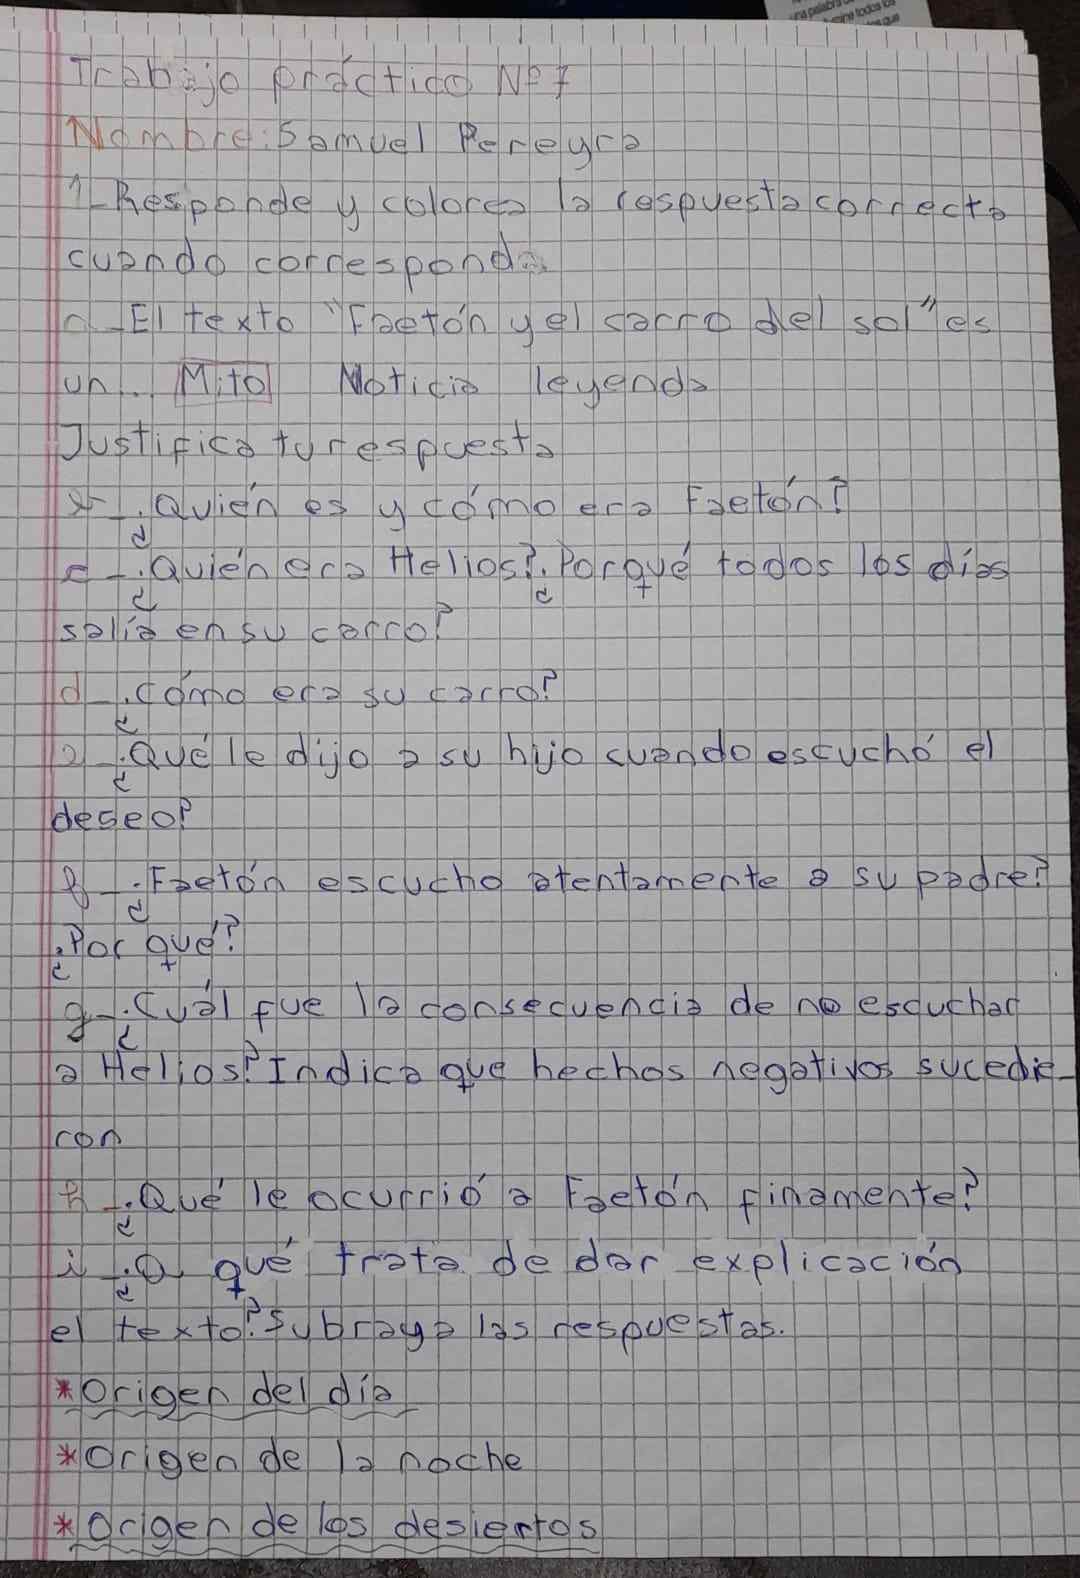 una palabra
todos los
que
Trabajo práctico Nº 7
Nombre: Samuel Pereyra
1_Responde y colorea la respuesta correcta
cuando corresponda.
a_El texto "Faetón y el carro del sol" es
un... Mito Noticia leyenda
Justifica tu respuesta
b_¿Quién es y cómo era Faetón?
c_¿Quién era Helios?¿Porqué todos los días
salía en su carro?
d_¿cómo era su carro?
e_¿Qué le dijo a su hijo cuando escuchó el
deseo?
f_¿Faetón escucho atentamente a su padre?
¿Por qué?
g_¿Cuál fue la consecuencia de no escuchar
a Helios? Indica que hechos negativos sucedie_
ron
h_¿Qué le ocurrió a Faetón finamente?
i_¿A qué trata de dar explicación
el texto? Subraya las respuestas.
*origen del día
*origen de la noche
*origen de los desiertos